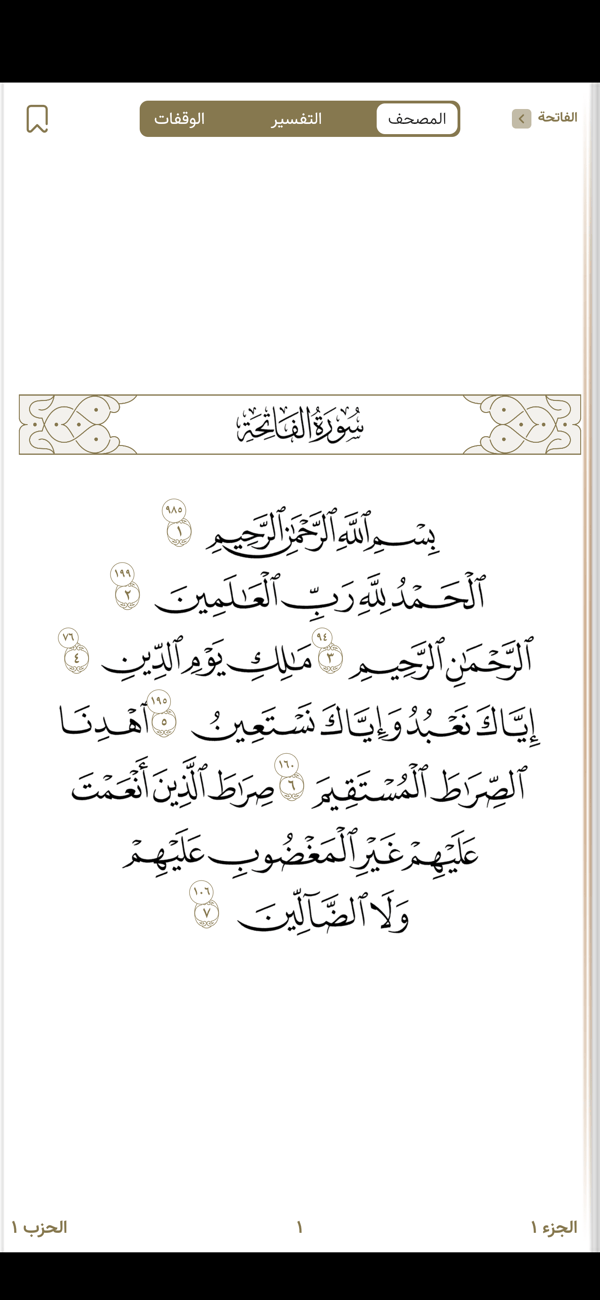 الفاتحة
المصحف التفسير الوقفات
سُورَةُ الفَاتِحَةِ
بِسْمِ ٱللَّهِ ٱلرَّحْمَٰنِ ٱلرَّحِيمِ ١ ٩٨٥
ٱلْحَمْدُ لِلَّهِ رَبِّ ٱلْعَٰلَمِينَ ٢ ١٩٩
ٱلرَّحْمَٰنِ ٱلرَّحِيمِ ٣ ٩٤ مَٰلِكِ يَوْمِ ٱلدِّينِ ٤ ٧٦
إِيَّاكَ نَعْبُدُ وَإِيَّاكَ نَسْتَعِينُ ٥ ١٩٥ ٱهْدِنَا
ٱلصِّرَٰطَ ٱلْمُسْتَقِيمَ ٦ ١٦٠ صِرَٰطَ ٱلَّذِينَ أَنْعَمْتَ
عَلَيْهِمْ غَيْرِ ٱلْمَغْضُوبِ عَلَيْهِمْ
وَلَا ٱلضَّآلِّينَ ٧ ١٠٦
الجزء ١ ١ الحزب ١